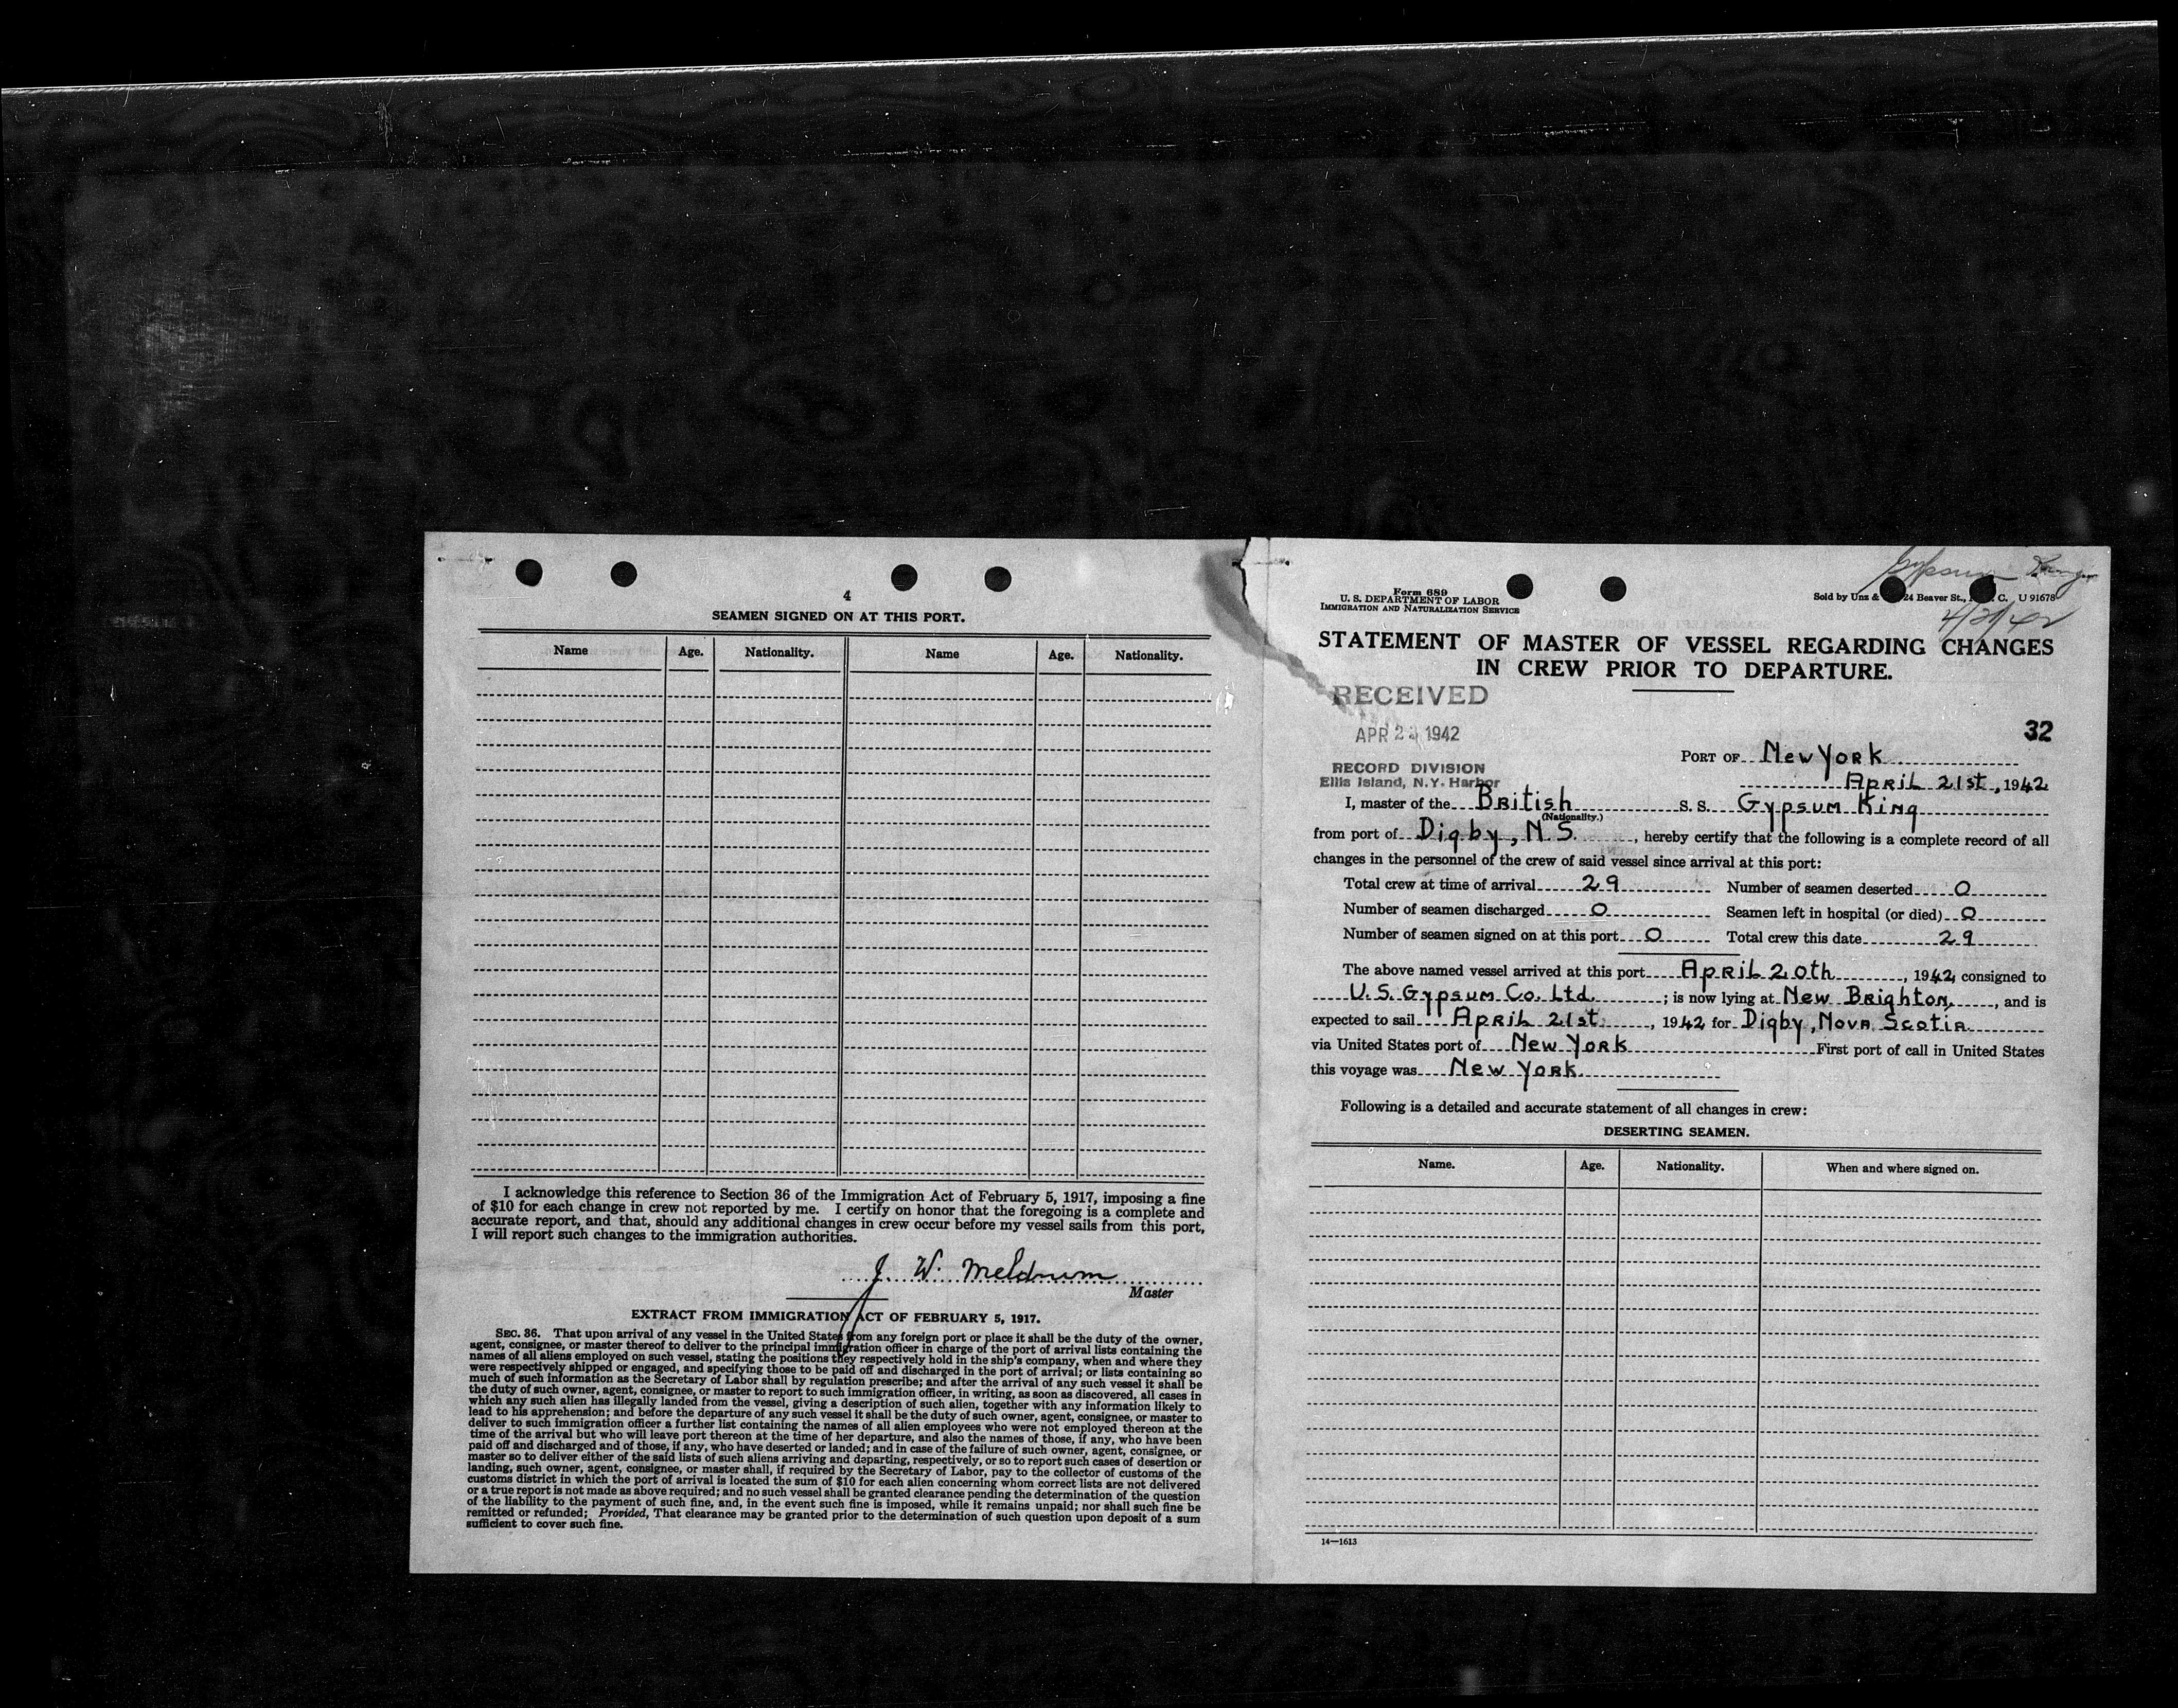 4
SEAMEN SIGNED ON AT THIS PORT.
Name Age. Nationality. Name Age. Nationality.
I acknowledge this reference to Section 36 of the Immigration Act of February 5, 1917, imposing a fine
of $10 for each change in crew not reported by me. I certify on honor that the foregoing is a complete and
accurate report, and that, should any additional changes in crew occur before my vessel sails from this port,
I will report such changes to the immigration authorities.
J. W. Meldrum
Master
EXTRACT FROM IMMIGRATION ACT OF FEBRUARY 5, 1917.
SEC. 36. That upon arrival of any vessel in the United States from any foreign port or place it shall be the duty of the owner,
agent, consignee, or master thereof to deliver to the principal immigration officer in charge of the port of arrival lists containing the
names of all aliens employed on such vessel, stating the positions they respectively hold in the ship's company, when and where they
were respectively shipped or engaged, and specifying those to be paid off and discharged in the port of arrival; or lists containing so
much of such information as the Secretary of Labor shall by regulation prescribe; and after the arrival of any such vessel it shall be
the duty of such owner, agent, consignee, or master to report to such immigration officer, in writing, as soon as discovered, all cases in
which any such alien has illegally landed from the vessel, giving a description of such alien, together with any information likely to
lead to his apprehension; and before the departure of any such vessel it shall be the duty of such owner, agent, consignee, or master to
deliver to such immigration officer a further list containing the names of all alien employees who were not employed thereon at the
time of the arrival but who will leave port thereon at the time of her departure, and also the names of those, if any, who have been
paid off and discharged and of those, if any, who have deserted or landed; and in case of the failure of such owner, agent, consignee, or
master so to deliver either of the said lists of such aliens arriving and departing, respectively, or so to report such cases of desertion or
landing, such owner, agent, consignee, or master shall, if required by the Secretary of Labor, pay to the collector of customs of the
customs district in which the port of arrival is located the sum of $10 for each alien concerning whom correct lists are not delivered
or a true report is not made as above required; and no such vessel shall be granted clearance pending the determination of the question
of the liability to the payment of such fine, and, in the event such fine is imposed, while it remains unpaid; nor shall such fine be
remitted or refunded; Provided, That clearance may be granted prior to the determination of such question upon deposit of a sum
sufficient to cover such fine.
Gypsum King
Form 689
U. S. DEPARTMENT OF LABOR
IMMIGRATION AND NATURALIZATION SERVICE
Sold by Unz & 24 Beaver St., C. U 91678
STATEMENT OF MASTER OF VESSEL REGARDING CHANGES
IN CREW PRIOR TO DEPARTURE.
RECEIVED
APR 1942
RECORD DIVISION
Ellis Island, N.Y. Harbor
32
PORT OF New York
April 21st, 1942
I, master of the British S. S. Gypsum King
(Nationality.)
from port of Digby, N.S., hereby certify that the following is a complete record of all
changes in the personnel of the crew of said vessel since arrival at this port:
Total crew at time of arrival 29 Number of seamen deserted 0
Number of seamen discharged 0 Seamen left in hospital (or died) 0
Number of seamen signed on at this port 0 Total crew this date 29
The above named vessel arrived at this port April 20th, 1942, consigned to
U.S. Gypsum Co. Ltd.; is now lying at New Brighton, and is
expected to sail April 21st, 1942 for Digby, Nova Scotia
via United States port of New York First port of call in United States
this voyage was New York
Following is a detailed and accurate statement of all changes in crew:
DESERTING SEAMEN.
Name. Age. Nationality. When and where signed on.
14—1613